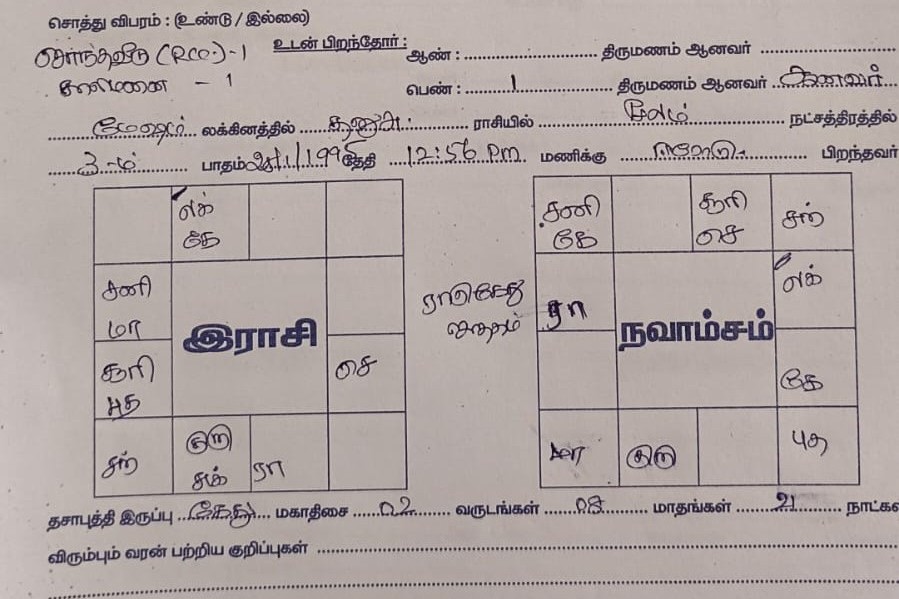 சொத்து விபரம் : (உண்டு / இல்லை)
சொந்தவீடு (RCC) - 1 உடன் பிறந்தோர் : ஆண் : திருமணம் ஆனவர்
காலிமனை - 1 பெண் : 1 திருமணம் ஆனவர்
மேஷம் லக்கினத்தில் தனுசு ராசியில் மூலம் நட்சத்திரத்தில்
3-ம் பாதம் 1/1995 தேதி 12:56 P.m. மணிக்கு பிறந்தவர்
லக் சனி சூரி சந்
கே கே செ
சனி ராகு கேது லக்
மா ரா
இராசி நவாம்சம்
சூரி செ கே
புத
சந் குரு ரா மா குரு புத
சுக்
தசாபுத்தி இருப்பு கேது மகாதிசை 02 வருடங்கள் 08 மாதங்கள் 21 நாட்கள்
விரும்பும் வரன் பற்றிய குறிப்புகள்